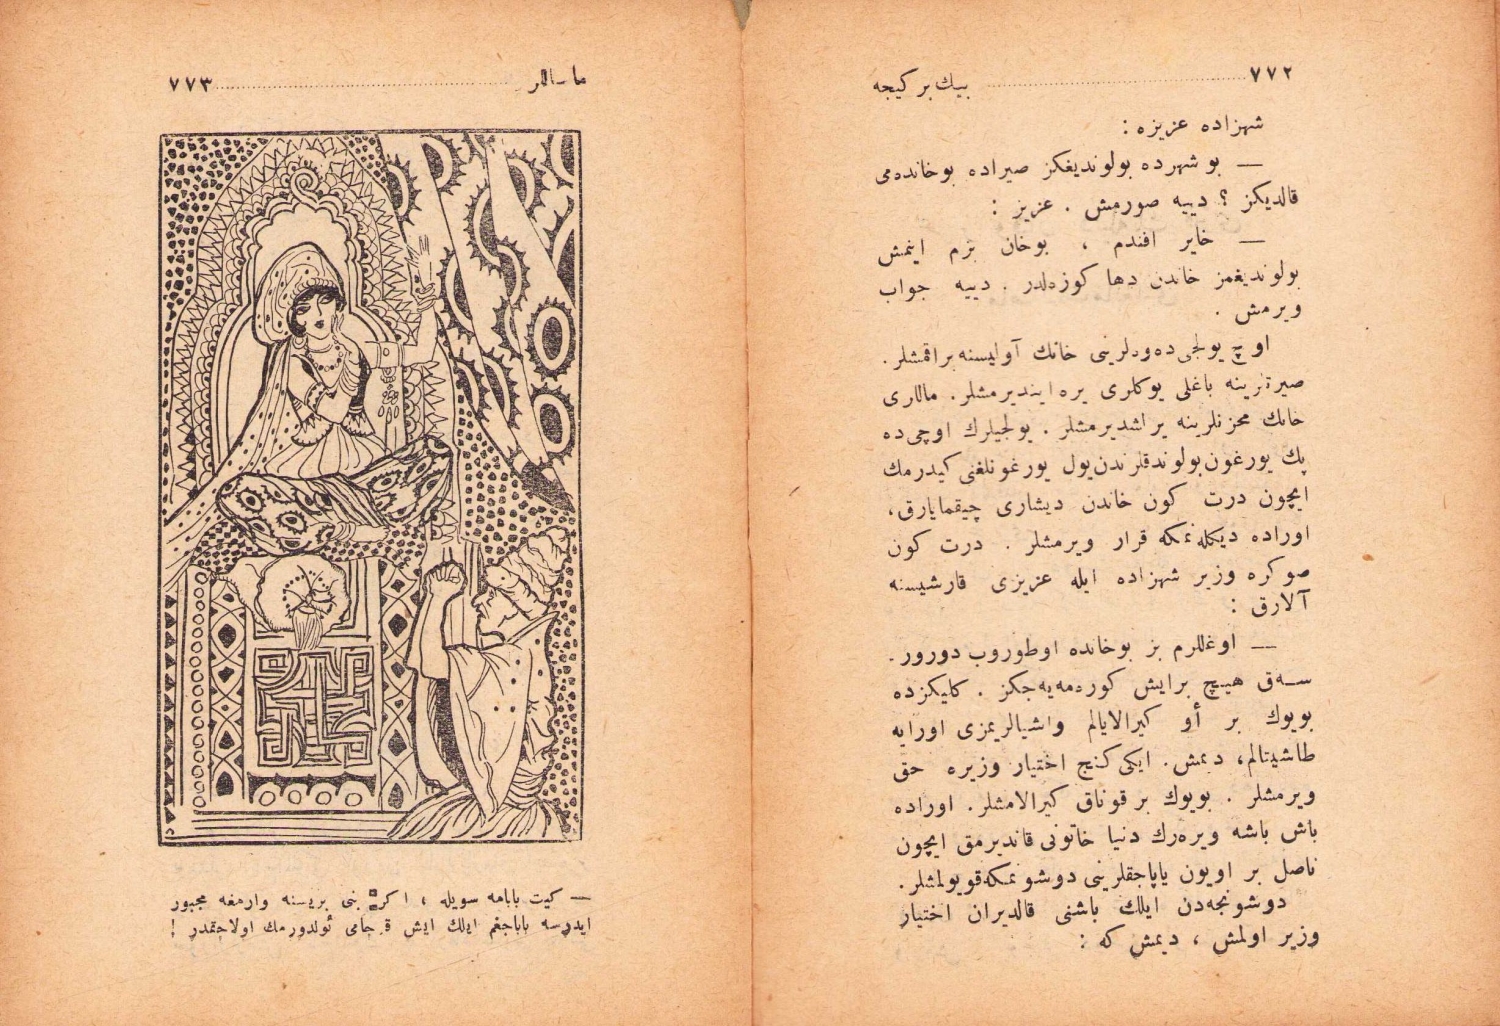 ٧٧٢ بيك بر كيجه
شهزاده عزيزه :
— بو شهرده بولونديغكز صيراده بوخانده‌می
قالديكز ؟ دييه صورمش . عزيز :
— خاير افندم ، بوخان بزم اينمش
بولونديغمز خاندن دها كوزه‌لدر . دييه جواب
ويرمش .
اوچ يولجی ده‌وه‌لرينی خانك آوليسنه براقمشلر .
صيرتزينه باغلی يوكلری يره اينديرمشلر . ماللری
خانك مخزنلرينه يراشديرمشلر . يولجيلرك اوچی‌ده
پك يورغون بولوندقلرندن يول يورغونلغنی كيدرمك
ايچون درت كون خاندن ديشاری چيقمايارق ،
اوراده ديكله‌نمكه قرار ويرمشلر . درت كون
صوكره وزير شهزاده ايله عزيزی قارشيسنه
آلارق :
— اوغللرم بز بوخانده اوطوروب دورور .
سه‌ق هيچ برايش كوره‌مه‌يه‌جكز . كليكزده
بويوك بر أو كيرالايالم واشيالريمزی اورايه
طاشيتالم، ديمش . ايكی كنج اختيار وزيره حق
ويرمشلر . بويوك بر قوناق كيرالامشلر . اوراده
باش باشه ويره‌رك دنيا خاتونی قانديرمق ايچون
ناصل بر اويون ياپاجقلرينی دوشونمكه قويولمشلر .
دوشونجه‌دن ايلك باشنی قالديران اختيار
وزير اولمش ، ديمش كه :
ماساللر ٧٧٣
— كيت بابامه سويله ، اكر بنی بريسنه وارمغه مجبور
ايدرسه ياپاجغم ايلك ايش قوجامی ئولدورمك اولاجقدر !